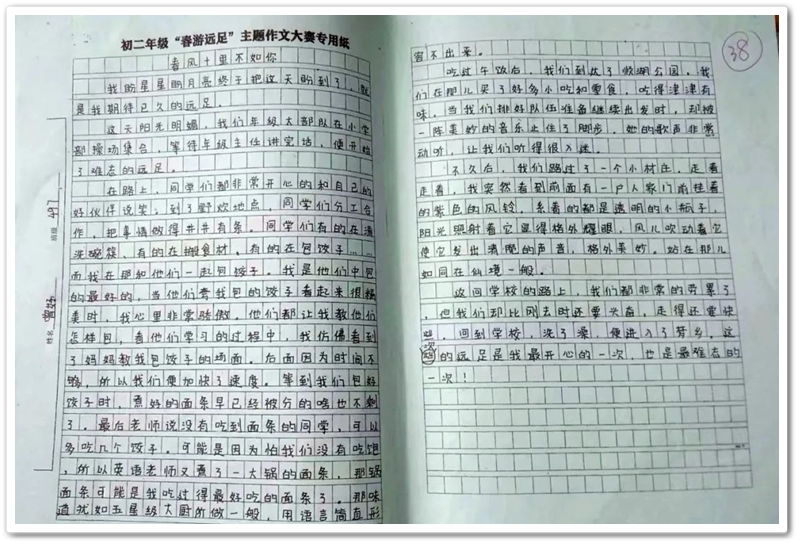 初二年级“春游远足”主题作文大赛专用纸
春风十里不如你
我盼星星盼月亮终于把这天盼到了，就
是我期待已久的远足。
这天阳光明媚，我们年级大部队在小学
部操场集合，等待年级主任讲完话，便开始
了难忘的远足。
在路上，同学们都非常开心的和自己的
好伙伴说笑；到了野炊地点，同学们分工合
作，把事情做得井井有条。同学们有的在清
洗碗筷、有的在搬食材、有的在包饺子……
而我在那和他们一起包饺子。我是他们中包
的最好的，当他们夸我包的饺子看起来很精
美时，我心里非常骄傲。他们都让我教他们
怎样包，看他们学习的过程中，我仿佛看到
了妈妈教我包饺子的场面。后面因为时间不
够，所以我们便加快了速度。等到我们包好
饺子时，煮好的面条早已经被分的啥也不剩
了。最后老师说没有吃到面条的同学，可以
多吃几个饺子。可能是因为怕我们没有吃饱
，所以英语老师又煮了一大锅的面条，那锅
面条可能是我吃过得最好吃的面条了。那味
道犹如五星级大厨所做一般，用语言简直形
班级 497
姓名 曾妤
容不出来。
38
吃过午饭后，我们到达了 湖公园，我
们在那儿买了好多小吃和零食，吃得津津有
味。当我们排好队伍准备继续出发时，却被
一阵美妙的音乐止住了脚步，她的歌声非常
动听，让我们听得很入迷。
不久后，我们路过了一个小村庄，走着
走着，我突然看到前面有一户人家门前挂着
的紫色的风铃，系着的都是透明的小瓶子，
阳光照射着它显得格外耀眼，风儿吹动着它
使它发出清脆的声音，格外美妙。站在那儿
如同在仙境一般。
这回学校的路上，我们都非常的劳累了
，但我们却比刚去时还要兴奋，走得还要快
些，回到学校，洗了澡，便进入了梦乡。这
次的远足是我最开心的一次，也是最难忘的
一次！